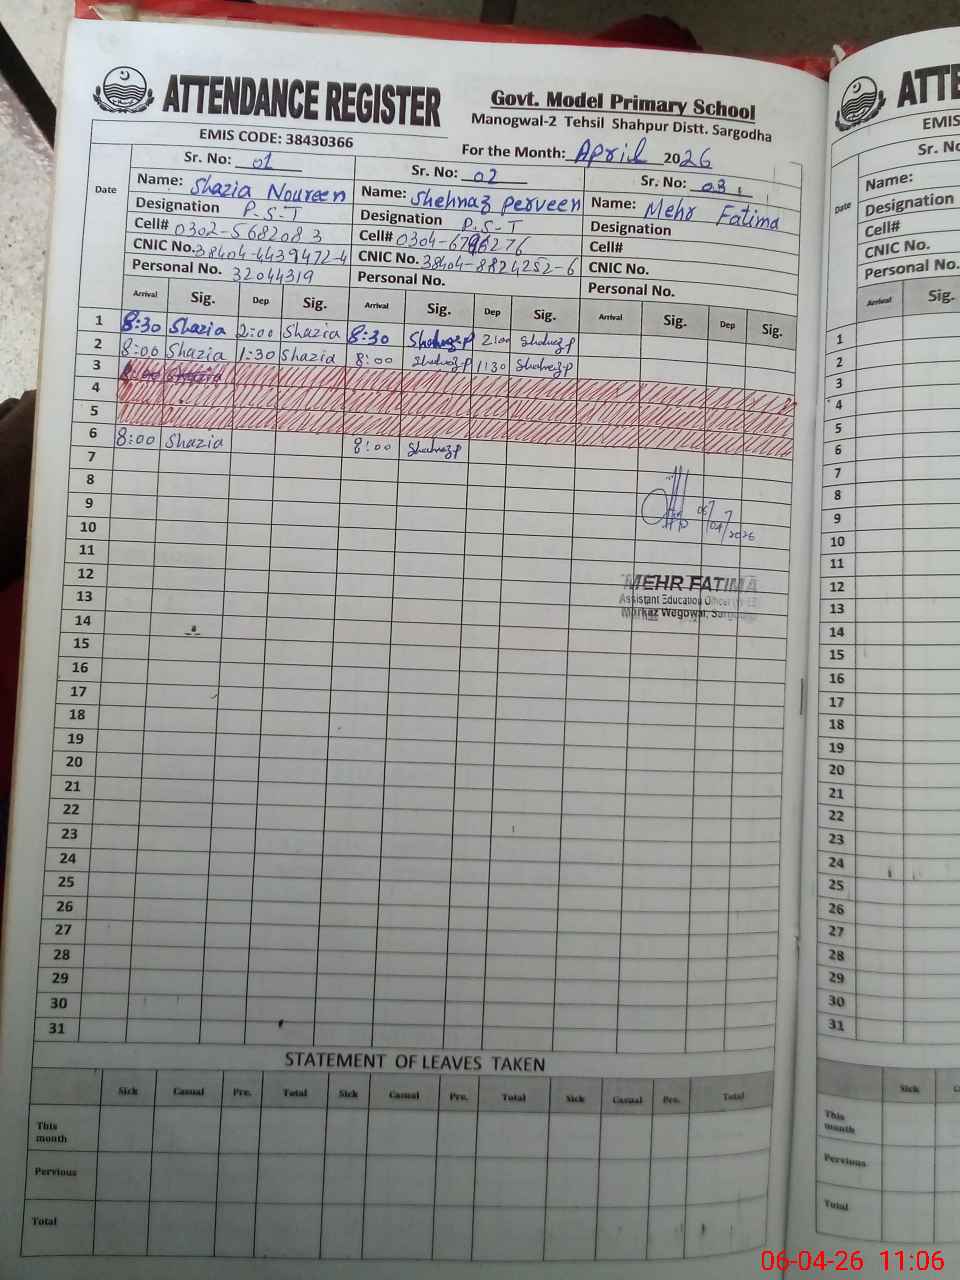 ATTENDANCE REGISTER
Govt. Model Primary School
Manogwal-2 Tehsil Shahpur Distt. Sargodha
EMIS CODE: 38430366
For the Month: April 2026
Date
Sr. No: 01
Name: Shazia Noureen
Designation P.S.T
Cell# 0302-5682083
CNIC No. 38404-4439472-4
Personal No. 32044319
Sr. No: 02
Name: Shehnaz Perveen
Designation P.S.T
Cell# 0304-6796276
CNIC No. 38404-8824252-6
Personal No.
Sr. No: 03
Name: Mehr Fatima
Designation
Cell#
CNIC No.
Personal No.
Arrival Sig. Dep Sig. Arrival Sig. Dep Sig. Arrival Sig. Dep Sig.
1 8:30 Shazia 2:00 Shazia 8:30 Shehnaz P 2:00 Shehnaz P
2 8:00 Shazia 1:30 Shazia 8:00 Shehnaz P 1:30 Shehnaz P
3 8:00 Shazia
4
5
6 8:00 Shazia 8:00 Shehnaz P
7
8
9
10
11
12
13
14
15
16
17
18
19
20
21
22
23
24
25
26
27
28
29
30
31
06/04/2026
MEHR FATIMA
Assistant Education Officer
Markaz Wegowal, Sargodha
STATEMENT OF LEAVES TAKEN
Sick Casual Pre. Total Sick Casual Pre. Total Sick Casual Pre. Total
This month
Pervious
Total
ATTE
EMIS
Sr. No
Date
Name:
Designation
Cell#
CNIC No.
Personal No.
Arrival Sig.
1
2
3
4
5
6
7
8
9
10
11
12
13
14
15
16
17
18
19
20
21
22
23
24
25
26
27
28
29
30
31
Sick
This month
Pervious
Total
06-04-26 11:06